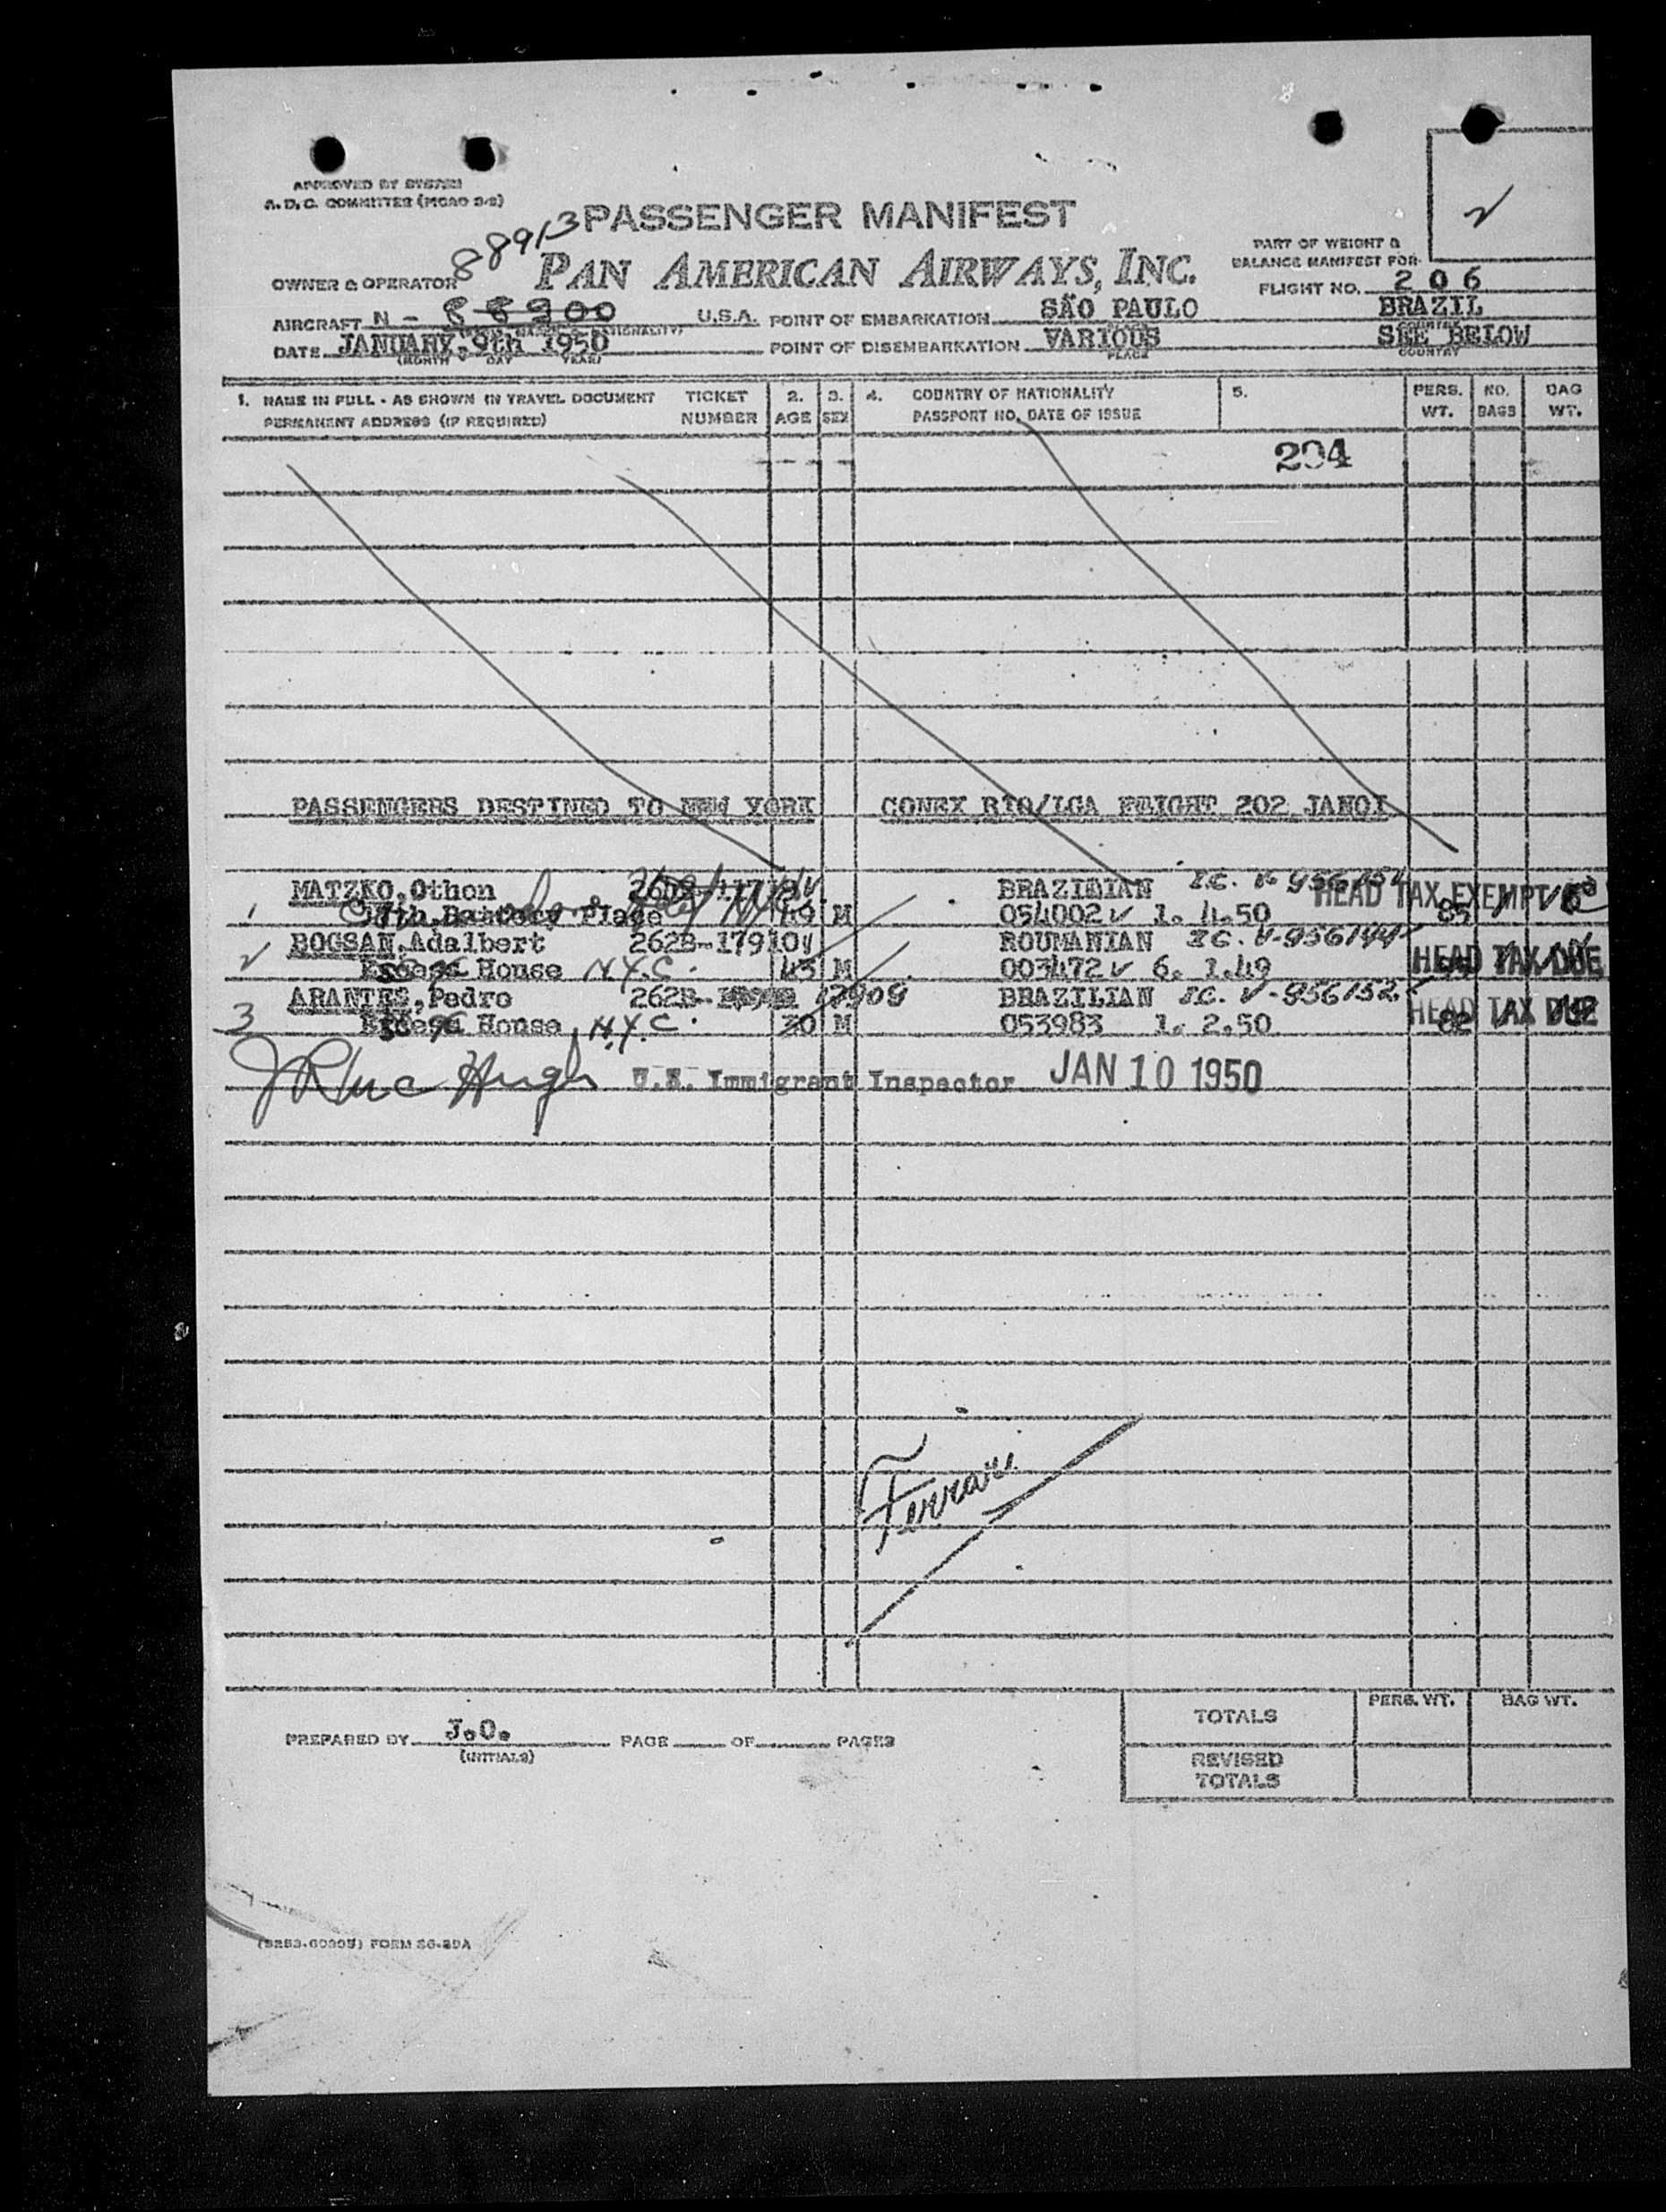 APPROVED BY SYSTEM
A.D.C. COMMITTEE (MCAO 3-2)
2
88913 PASSENGER MANIFEST
PART OF WEIGHT &
BALANCE MANIFEST FOR
OWNER & OPERATOR PAN AMERICAN AIRWAYS, INC.
FLIGHT NO. 2 0 6
AIRCRAFT N - 88900 U.S.A. POINT OF EMBARKATION SÃO PAULO BRAZIL
DATE JANUARY, 9th 1950 POINT OF DISEMBARKATION VARIOUS SEE BELOW
(MONTH DAY YEAR) PLACE COUNTRY
1. NAME IN FULL - AS SHOWN IN TRAVEL DOCUMENT TICKET 2. 3. 4. COUNTRY OF NATIONALITY 5. PERS. NO. BAG
PERMANENT ADDRESS (IF REQUIRED) NUMBER AGE SEX PASSPORT NO. DATE OF ISSUE WT. BAGS WT.
294
PASSENGERS DESTINED TO NEW YORK CONEX RIO/LGA FLIGHT 202 JAN01
MATZKO, Othon BRAZILIAN I.C. V-956154 HEAD TAX EXEMPT
1 Battery Place 49 M 054002 1. 4.50 85
2 BOGSAN, Adalbert 262B-17910 ROUMANIAN I.C. V-956144
Essex House N.Y.C. 43 M 003472 6. 1.49 HEAD TAX DUE
ARANTES, Pedro 262B- 17909 BRAZILIAN I.C. V-956152
3 Essex House, N.Y.C. 30 M 053983 1. 2.50 82 HEAD TAX DUE
U.S. Immigrant Inspector JAN 10 1950
PREPARED BY J.O. PAGE OF PAGES
(INITIALS)
TOTALS PERS. WT. BAG WT.
REVISED
TOTALS
FORM SG-29A